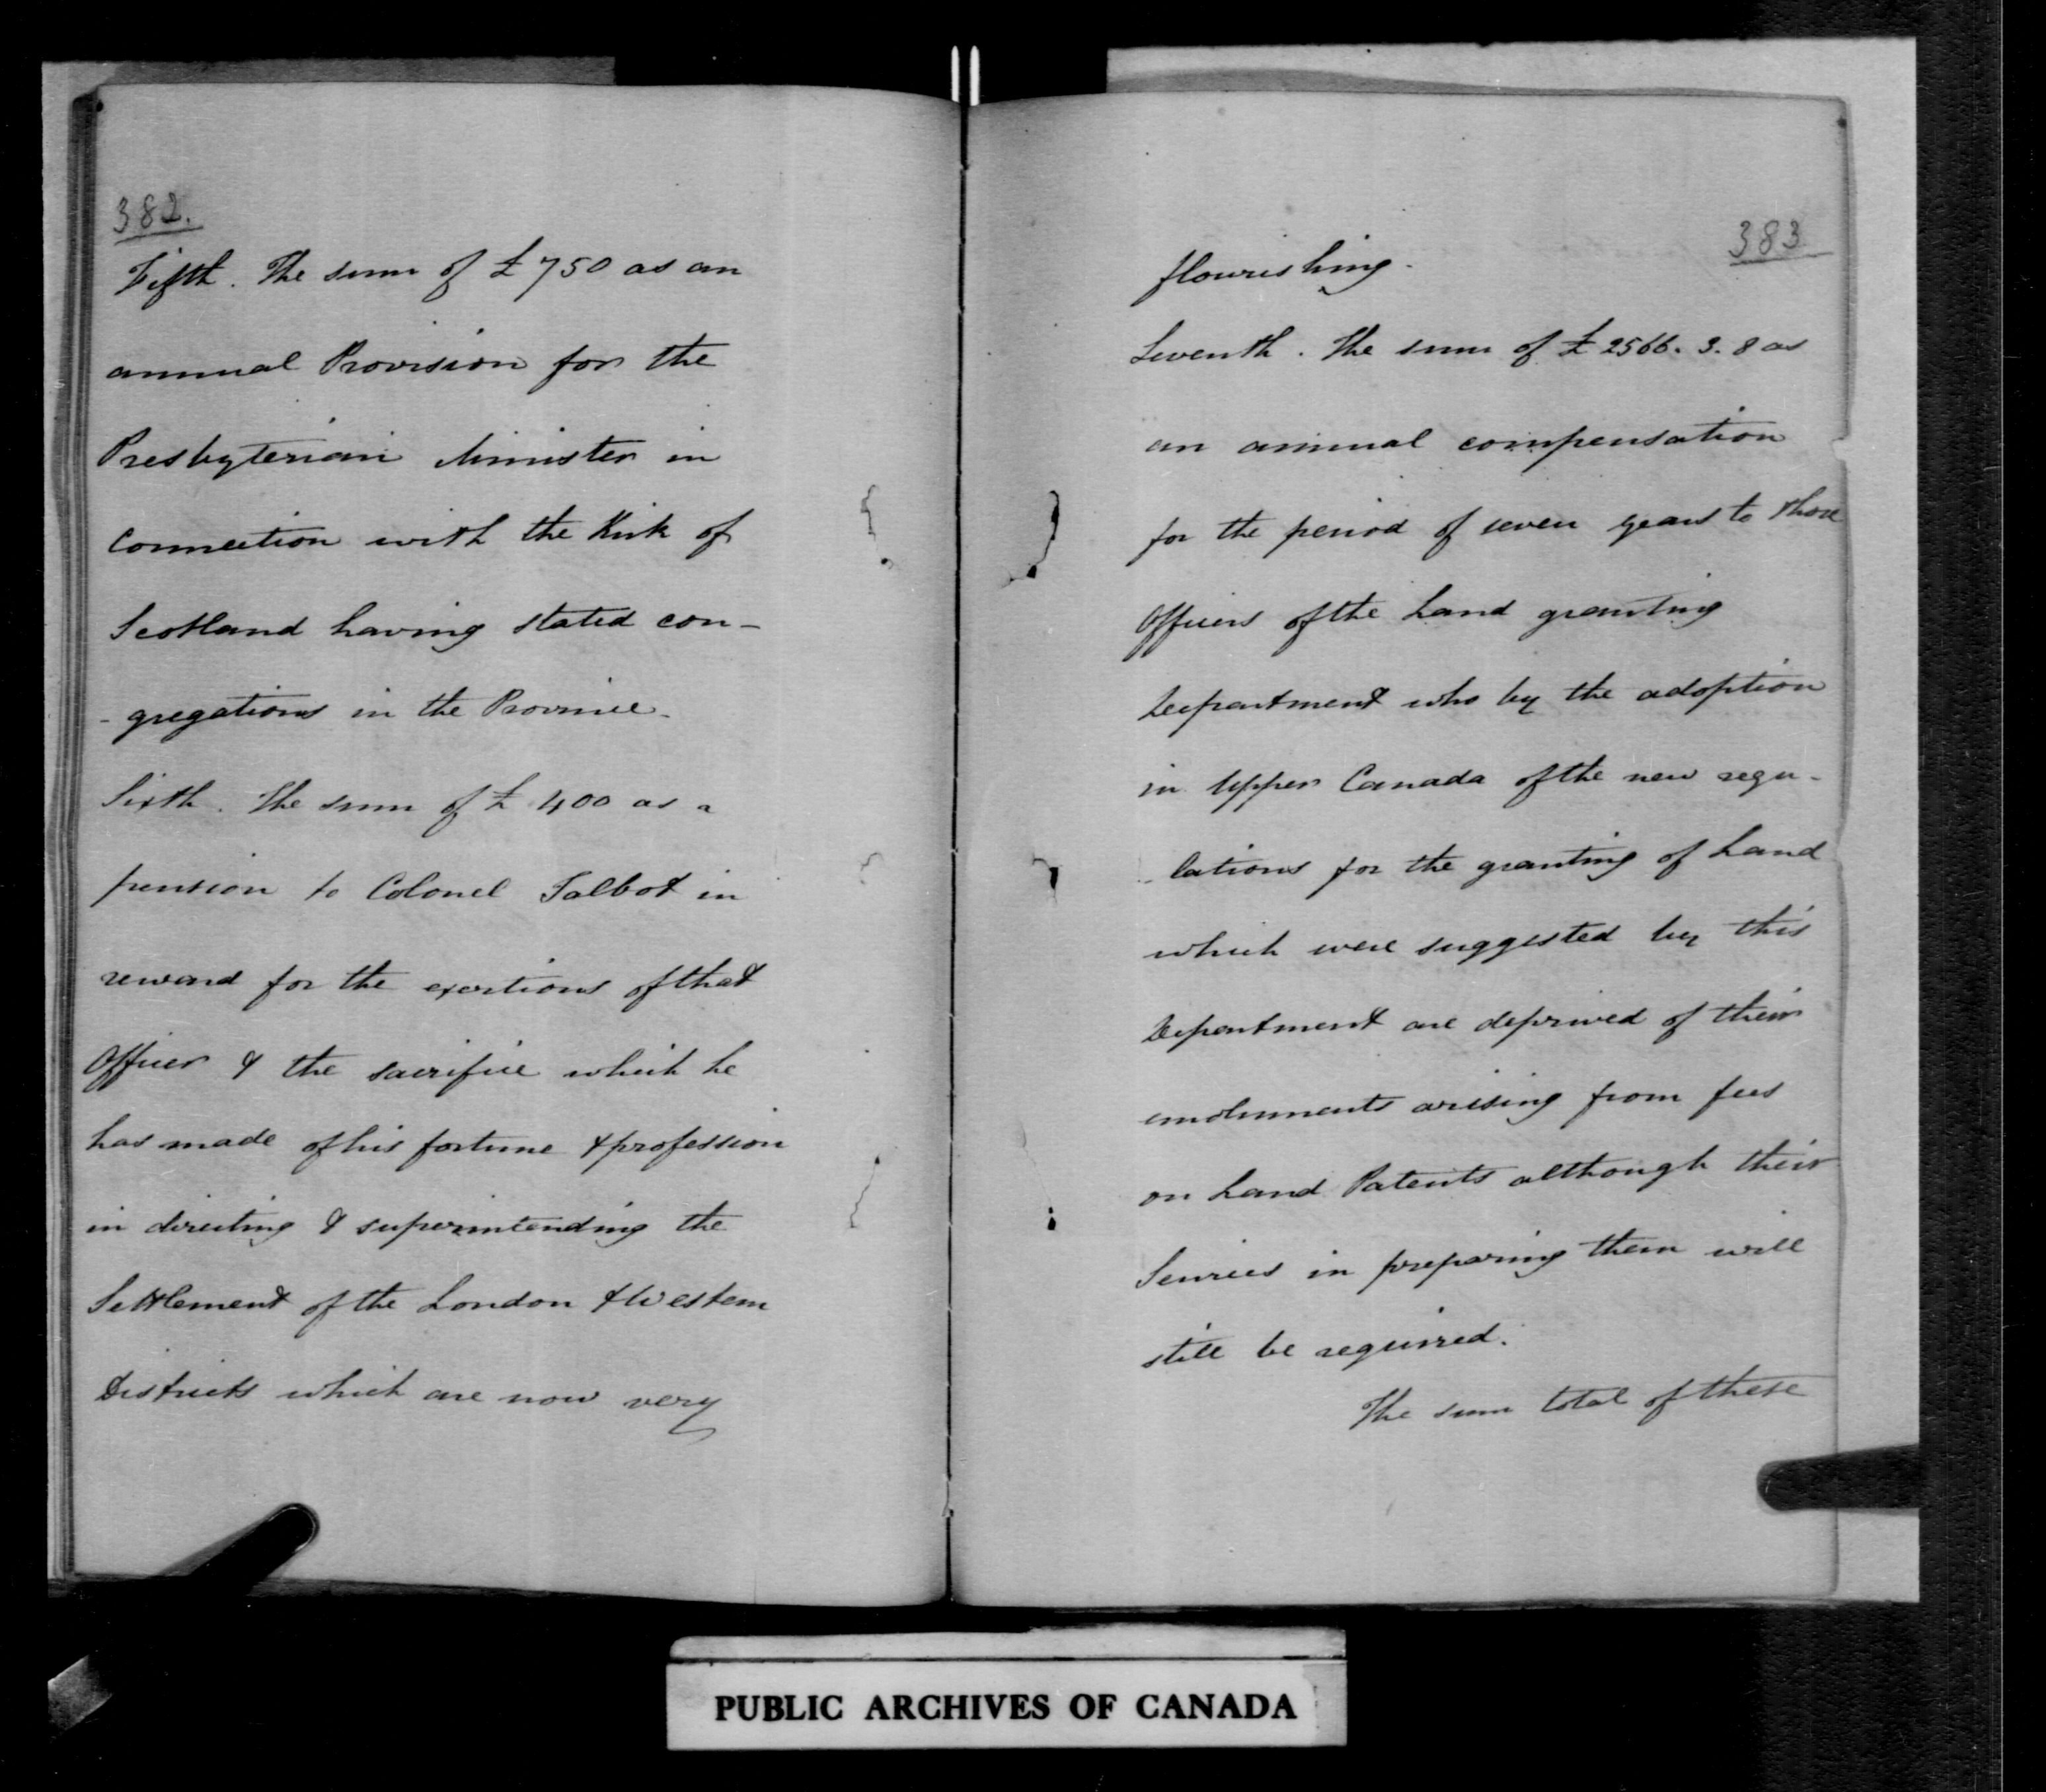 382.
Fifth. The sum of £750 as an
annual Provision for the
Presbyterian Minister in
connection with the Kirk of
Scotland having stated con-
-gregations in the Province.
Sixth. The sum of £400 as a
pension to Colonel Talbot in
reward for the exertions of that
Officer & the sacrifice which he
has made of his fortune & profession
in directing & superintending the
Settlement of the London & Western
Districts which are now very
383
flourishing.
Seventh. The sum of £2566. 3. 8 as
an annual compensation
for the period of seven years to those
Officers of the Land granting
Department who by the adoption
in Upper Canada of the new regu-
-lations for the granting of Land
which were suggested by this
Department are deprived of their
emoluments arising from fees
on Land Patents although their
Services in preparing them will
still be required.
The sum total of these
PUBLIC ARCHIVES OF CANADA